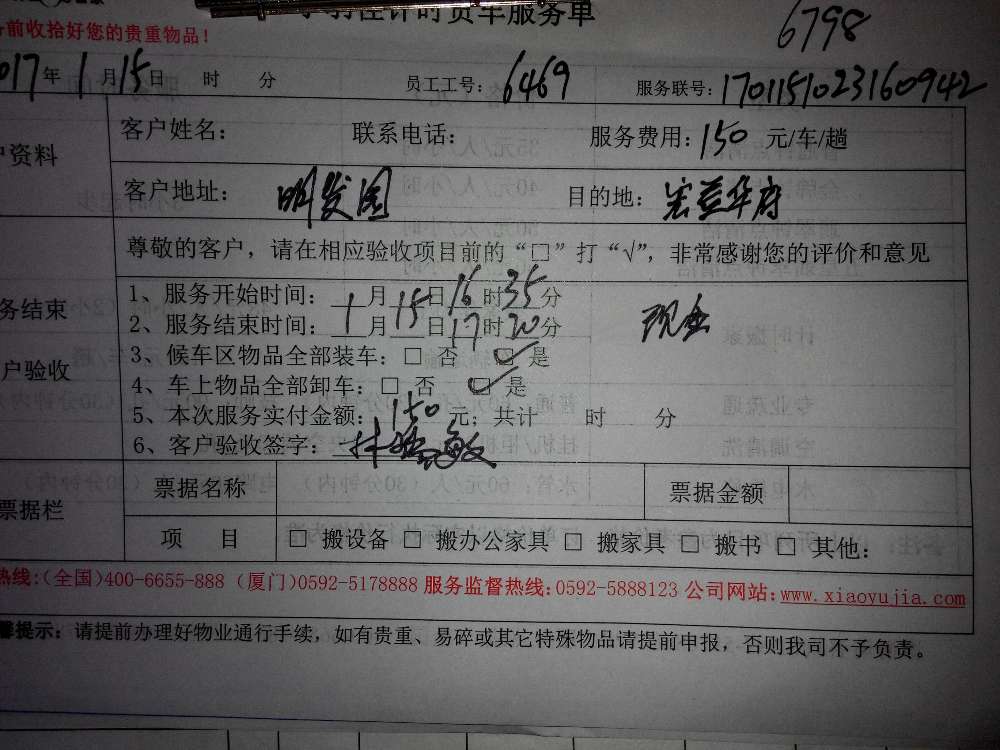 时货车服务单
6798
前收拾好您的贵重物品！
017年1月15日 时 分 员工工号：6469 服务联号：170115102316 0942
户资料 客户姓名： 联系电话： 服务费用：150 元/车/趟
客户地址：明发园 目的地：宏益华府
尊敬的客户，请在相应验收项目前的“□”打“√”，非常感谢您的评价和意见
务结束
户验收
1、服务开始时间：1月15日16时35分
2、服务结束时间：1月15日17时20分 现金
3、候车区物品全部装车：□ 否 ☑ 是
4、车上物品全部卸车：□ 否 ☑ 是
5、本次服务实付金额：150元；共计 时 分
6、客户验收签字：
票据栏 票据名称 票据金额
项 目 □ 搬设备 □ 搬办公家具 □ 搬家具 □ 搬书 □ 其他：
热线:(全国)400-6655-888 (厦门)0592-5178888 服务监督热线:0592-5888123 公司网站:www.xiaoyujia.com
馨提示：请提前办理好物业通行手续，如有贵重、易碎或其它特殊物品请提前申报，否则我司不予负责。